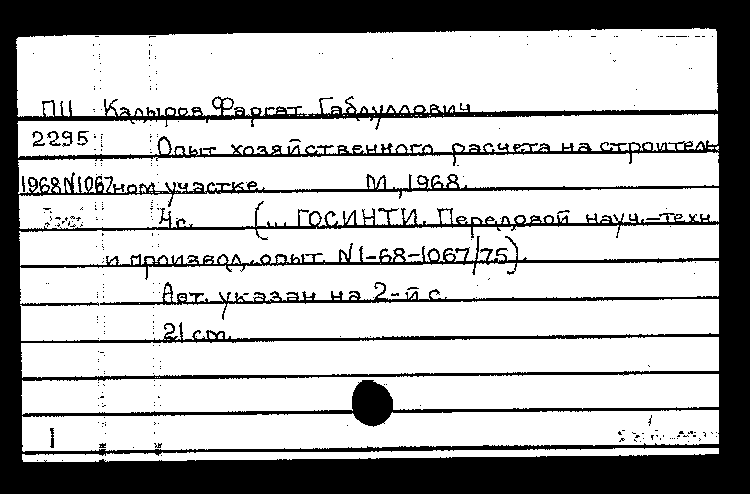 ПЦ Кадыров, Фаргат Габдуллович
2295
Опыт хозяйственного расчета на строитель
1968 N1067 ном участке. М., 1968.
4с. (... ГОСИНТИ. Передовой науч.-техн.
и производ. опыт. N 1-68-1067/75).
Авт. указан на 2-й с.
21 cm.
1